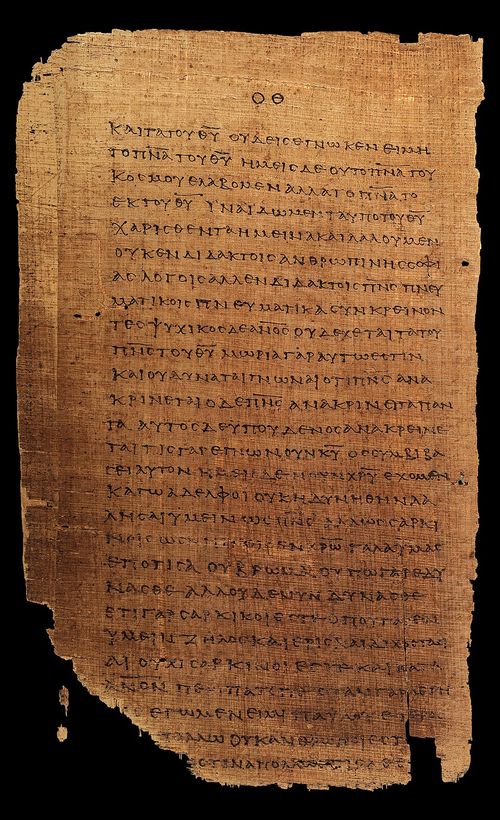 ΟΘ
ΚΑΙΤΑΤΟΥΘ̅Υ̅ ΟΥΔΕΙϹΕΓΝΩΚΕΝΕΙΜΗ
ΤΟΠ̅Ν̅Α̅ΤΟΥΘ̅Υ̅ ΗΜΕΙϹΔΕΟΥΤΟΠ̅Ν̅Α̅ΤΟΥ
ΚΟϹΜΟΥΕΛΑΒΟΜΕΝΑΛΛΑΤΟΠ̅Ν̅Α̅ΤΟ
ΕΚΤΟΥΘ̅Υ̅ ΙΝΑΙΔΩΜΕΝΤΑΥΠΟΤΟΥΘ̅Υ̅
ΧΑΡΙϹΘΕΝΤΑΗΜΕΙΝΑΚΑΙΛΑΛΟΥΜΕΝ
ΟΥΚΕΝΔΙΔΑΚΤΟΙϹΑΝΘΡΩΠΙΝΗϹϹΟΦΙ
ΑϹΛΟΓΟΙϹΑΛΛΕΝΔΙΔΑΚΤΟΙϹΠ̅Ν̅Ϲ̅ΠΝΕΥ
ΜΑΤΙΚΟΙϹΠΝΕΥΜΑΤΙΚΑϹΥΝΚΡΕΙΝΟΝ
ΤΕϹΨΥΧΙΚΟϹΔΕΑ̅Ν̅Ο̅Ϲ̅ΟΥΔΕΧΕΤΑΙΤΑΤΟΥ
Π̅Ν̅Ϲ̅ΤΟΥΘ̅Υ̅ ΜΩΡΙΑΓΑΡΑΥΤΩΕϹΤΙΝ
ΚΑΙΟΥΔΥΝΑΤΑΙΓΝΩΝΑΙΟΤΙΠ̅Ν̅Ϲ̅ΑΝΑ
ΚΡΙΝΕΤΑΙΟΔΕΠ̅Ν̅Ϲ̅ΑΝΑΚΡΙΝΕΙΤΑΠΑΝ
ΤΑ ΑΥΤΟϹΔΕΥΠΟΥΔΕΝΟϹΑΝΑΚΡΕΙΝΕ
ΤΑΙΤΙϹΓΑΡΕΓΝΩΝΟΥΝΚ̅Υ̅ ΟϹϹΥΜΒΙΒΑ
ϹΕΙΑΥΤΟΝΗΜΕΙϹΔΕΝΟΥΝΧ̅Ρ̅Υ̅ΕΧΟΜΕΝ
ΚΑΓΩΑΔΕΛΦΟΙΟΥΚΗΔΥΝΗΘΗΝΛΑ
ΛΗϹΑΙΥΜΕΙΝΩϹΠ̅Ν̅Ϲ̅ΑΛΛΩϹϹΑΡΚΙ
ΝΟΙϹΩϹΝΗΠΙΟΙϹΕΝΧ̅Ρ̅Ω̅ΓΑΛΑΥΜΑϹ
ΕΠΟΤΙϹΑ ΟΥΒΡΩΜΑΟΥΠΩΓΑΡΕΔΥ
ΝΑϹΘΕ ΑΛΛΟΥΔΕΝΥΝΔΥΝΑϹΘΕ
ΕΤΙΓΑΡϹΑΡΚΙΚΟΙΕϹΤΕΟΠΟΥΓΑΡΕΝ
ΥΜΕΙΝΖΗΛΟϹΚΑΙΕΡΙϹΚΑΙΔΙΧΟϹΤΑϹΙ
ΑΙΟΥΧΙϹΑΡΚΙΝΟΙΕϹΤΕΚΑΙΚΑΤΑ
Α̅Ν̅Ο̅Ν̅ΠΕΡΙΠΑΤΕΙΤΕΟΤΑΝΓΑΡΛΕΓΗ
ΕΓΩΜΕΝΕΙΜΙΠΑΥΛΟΥ
ΟΥΚΑΝΘΡΩΠΟΙΕϹΤ